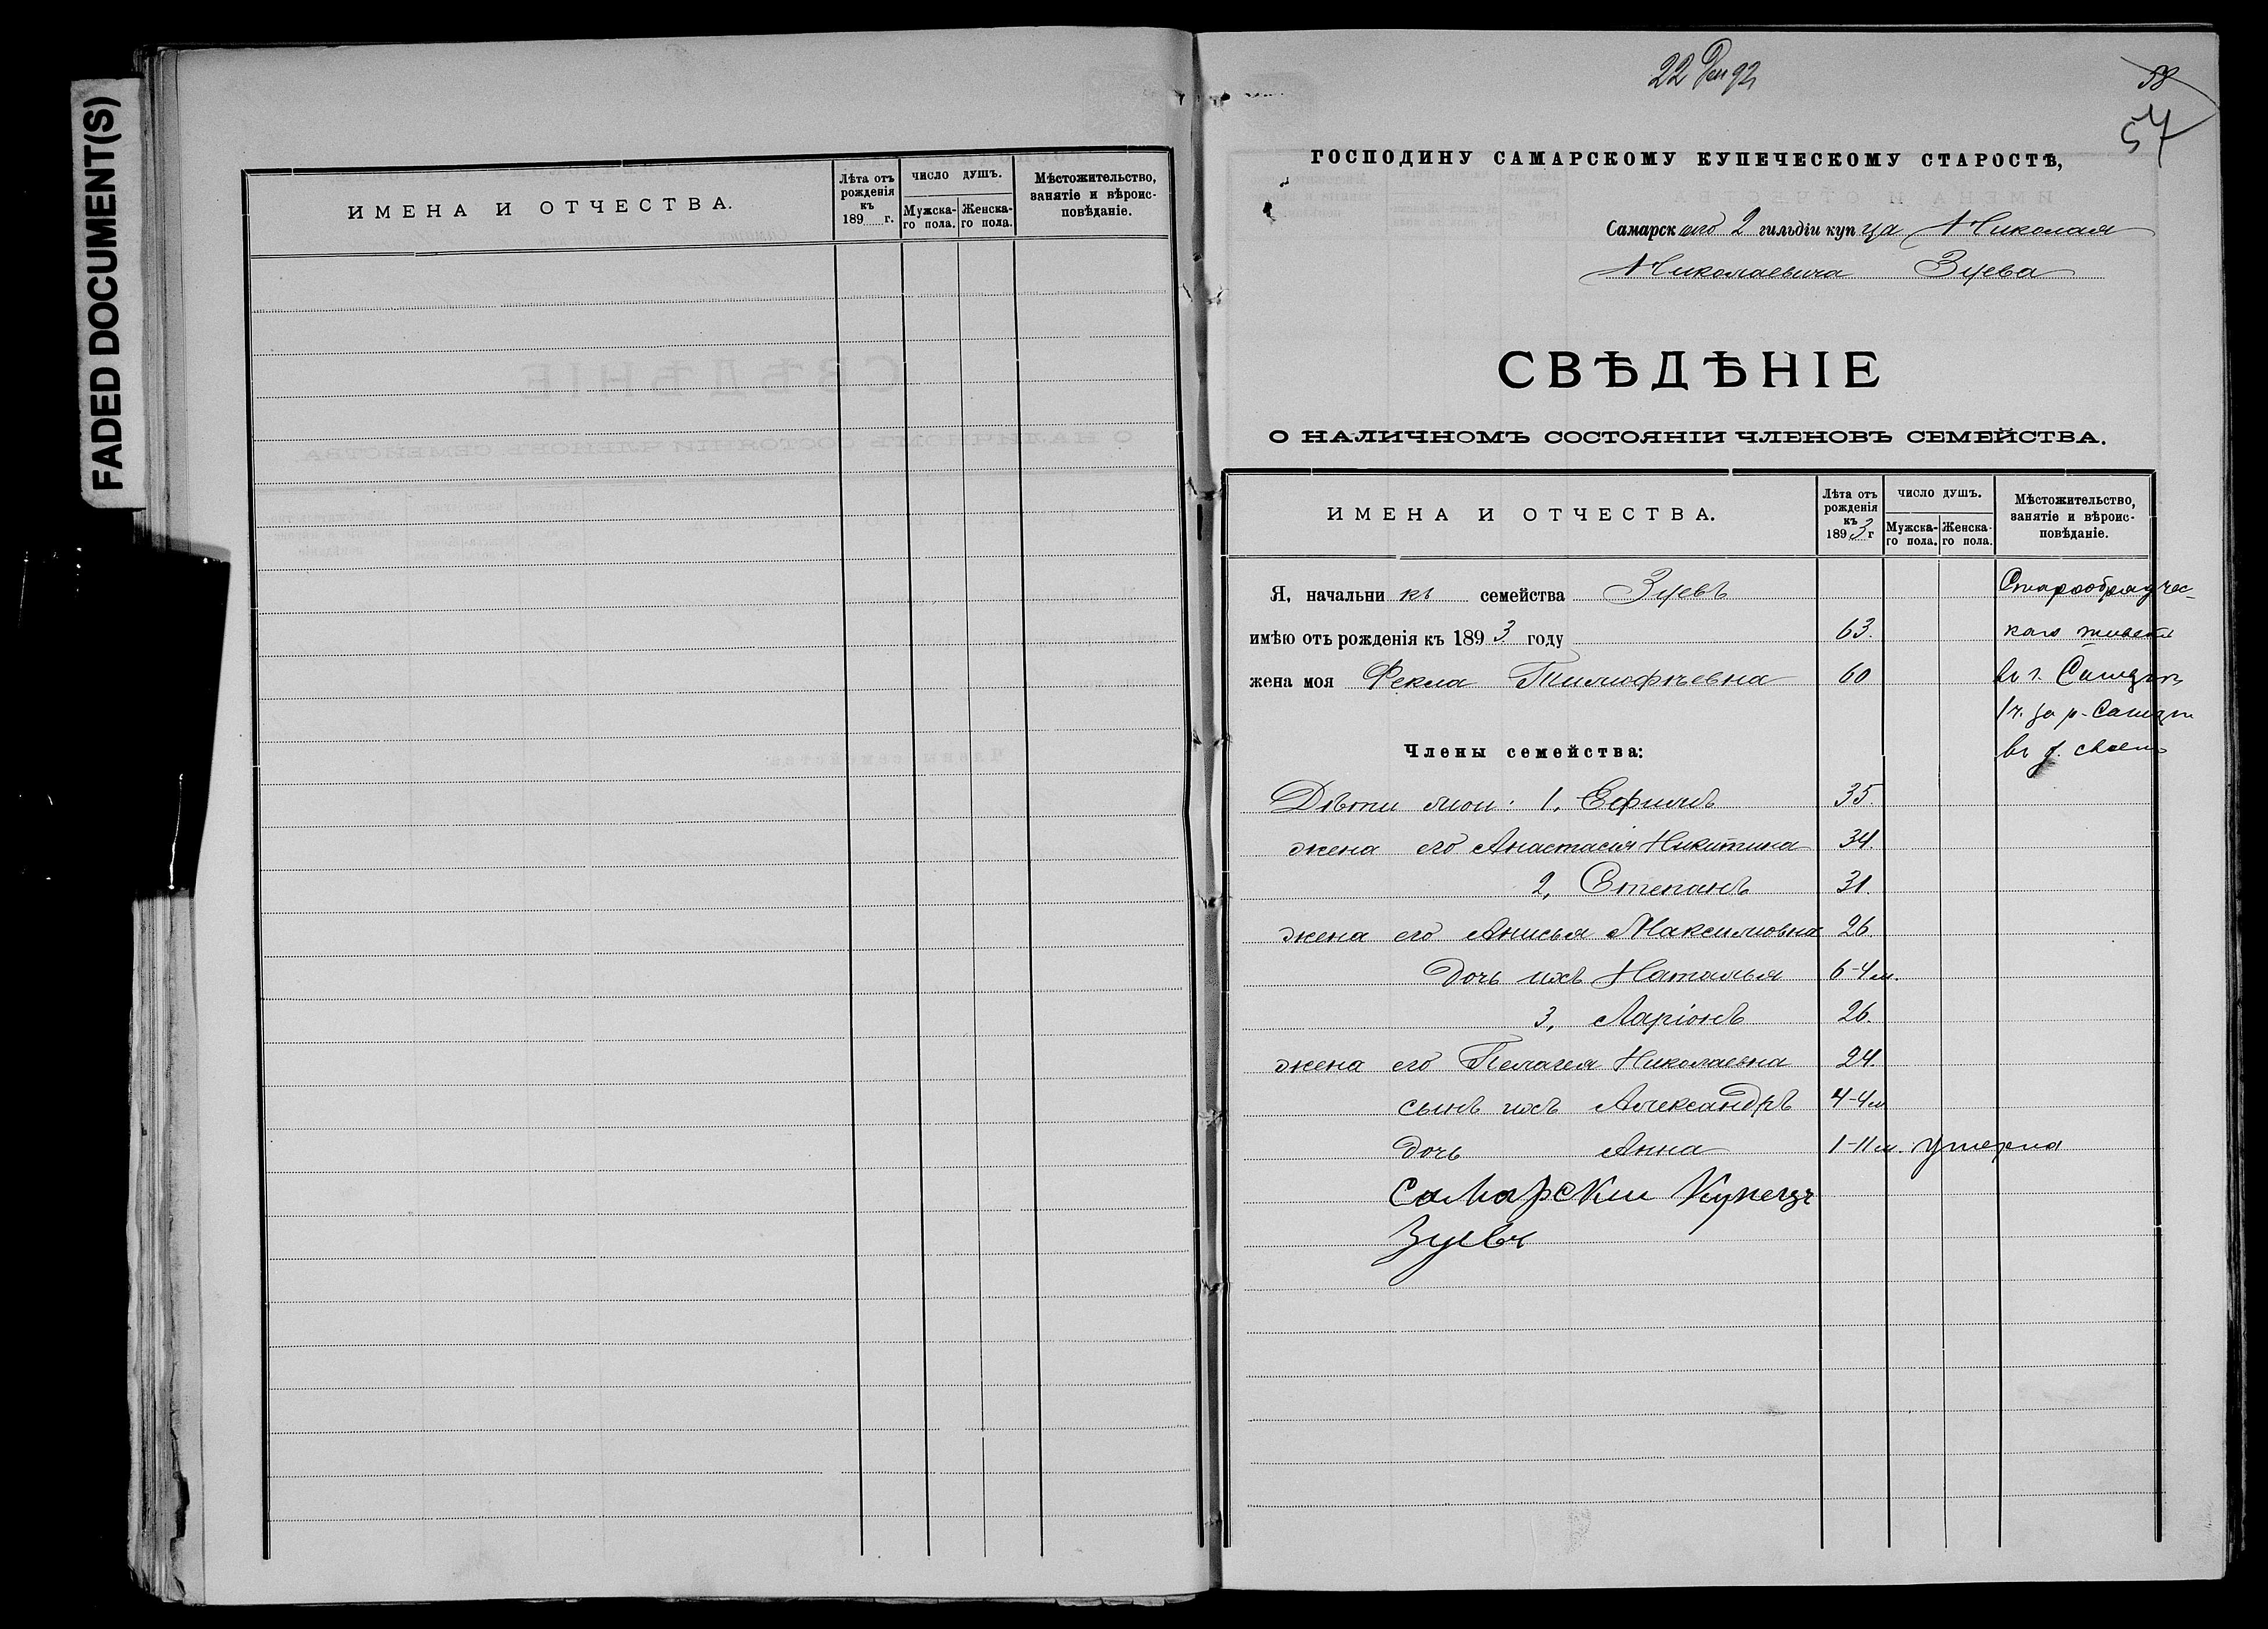 FADED DOCUMENT(S)
ИМЕНА И ОТЧЕСТВА.
Лѣта отъ
рожденія
къ
189 г.
ЧИСЛО ДУШЪ.
Мужска-
го пола.
Женска-
го пола.
Мѣстожительство,
занятіе и вѣроис-
повѣданіе.
22 92
58
57
ГОСПОДИНУ САМАРСКОМУ КУПЕЧЕСКОМУ СТАРОСТѢ,
Самарскаго 2 гильдіи купца Николая
Николаевича Зуева
СВѢДѢНІЕ
О НАЛИЧНОМЪ СОСТОЯНІИ ЧЛЕНОВЪ СЕМЕЙСТВА.
ИМЕНА И ОТЧЕСТВА.
Лѣта отъ
рожденія
къ
1893 г
ЧИСЛО ДУШЪ.
Мужска-
го пола.
Женска-
го пола.
Мѣстожительство,
занятіе и вѣроис-
повѣданіе.
Я, начальникъ семейства Зуевъ Старообрядчес-
имѣю отъ рожденія къ 1893 году 63. каго живетъ
жена моя Фекла Тимофѣевна 60 въ г.
1 ч. за р.
Члены семейства: въ д. своемъ
Дѣти мои: 1, Ефимъ 35.
жена его Анастасія Никитина 34.
2, Степанъ 31.
жена его Анисья Максимовна 26.
дочь ихъ Наталья 6-4м.
3, Ларіонъ 26.
жена его Пелагея Николаевна 24.
сынъ ихъ Александръ 4-4м
дочь Анна 1-11м. умерла
Самарскии Купецъ
Зуевъ